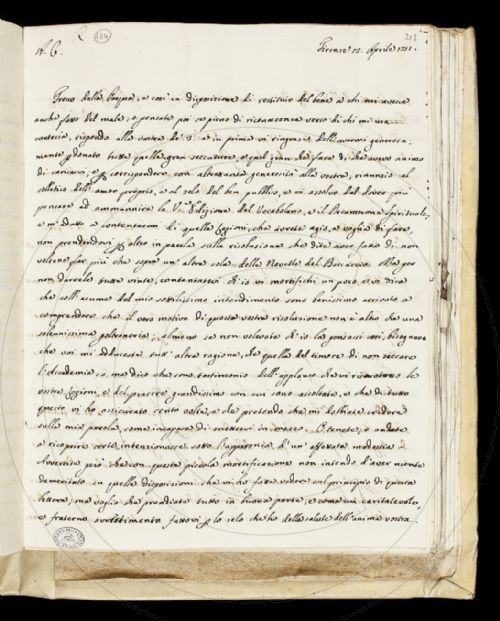 104
213
A. C.
Firenze 15. Aprile 1751.
Fresco della Pasqua, e così in disposizione di restituir del bene a chi mi avesse
anche fatto del male, e pensate poi se pieno di riconoscenza verso di chi mi usa
cortesia, rispondo alla vostra de' 9. e in prima vi ringrazio dell'avermi generosa-
mente donato tutte quelle gran seccature, e quel gran da fare di che avevo animo
di caricarvi, e p corrispondere con altrettanta generosità alla vostra, rinunzio al
solletico dell'amor proprio, e al zelo del ben pubblico, e vi assolvo dal dover più
pensare ad ammannire la V.a Edizione del Vocabolario, e il Decamerone Spirituale,
e m' adatto a contentarmi di quelle Lezioni, che avrete agio, e voglia di fare,
non prendendovi p altro in parola sulla risoluzione che dite aver fatto di non
volerne far più che sopra un' altra sola delle Novelle del Boccaccio. Ma per
non darvele tutte vinte, contentatevi ch' io vi mortifichi un poco, e vi dica
che coll' acume del mio sottilissimo intendimento sono benissimo arrivato a
comprendere che il vero motivo di questa vostra risoluzione non è altro che una
solennissima poltroneria, almeno se non volevate ch' io la pensassi così, bisognava
che voi mi adduceste tutt' altra ragione, che quella del timore di non seccare
l'Accademia; io, me dico che sono testimonio dell' applauso che vi riscuotono le
vostre Lezioni, e del piacere grandissimo con cui sono ascoltate, e che di tutto
questo vi ho assicurato cento volte, e che pretendo che mi dobbiate credere
sulla mia parola, come incapace di mettervi in mezzo. O tenete, o andate
a ricoprire certe intenzionacce sotto l'apparenza d' un' affettata modestia.
Avvertite però che con questa piccola mortificazione non intendo d' aver niente
demeritato in quelle disposizioni che vi ho fatte vedere sul principio di questa
lettera; ma voglio che prendiate tutto in buona parte, e come un caritatevole,
e fraterno avvertimento fattovi p lo zelo che ho della salute dell' anima vostra.